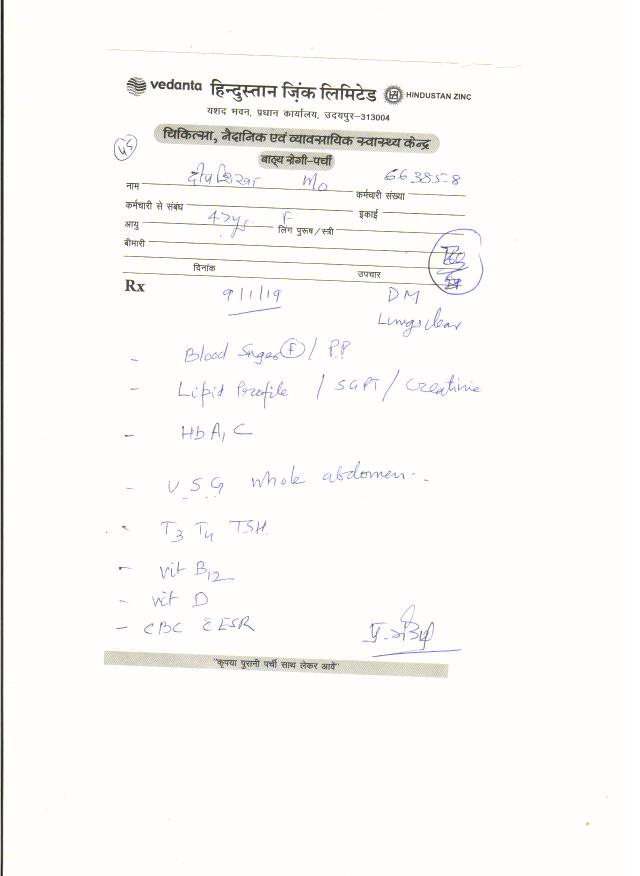 vedanta हिन्दुस्तान ज़िंक लिमिटेड HINDUSTAN ZINC
यशद भवन, प्रधान कार्यालय, उदयपुर-313004
चिकित्सा, नैदानिक एवं व्यावसायिक स्वास्थ्य केन्द्र
बाह्य रोगी-पर्ची
नाम दीपशिखा M/o कर्मचारी संख्या 663858
कर्मचारी से संबंध इकाई
आयु 47ys F लिंग पुरूष/स्त्री
बीमारी
दिनांक उपचार
Rx 9/1/19 DM
Lungs clear
- Blood Sugar F / P.P
- Lipid Profile / SGPT / Creatinie
- HbA1C
- U.S.G whole abdomen
- T3 T4 TSH
- vit B12
- vit D
- CBC c̄ ESR
"कृपया पुरानी पर्ची साथ लेकर आवें"